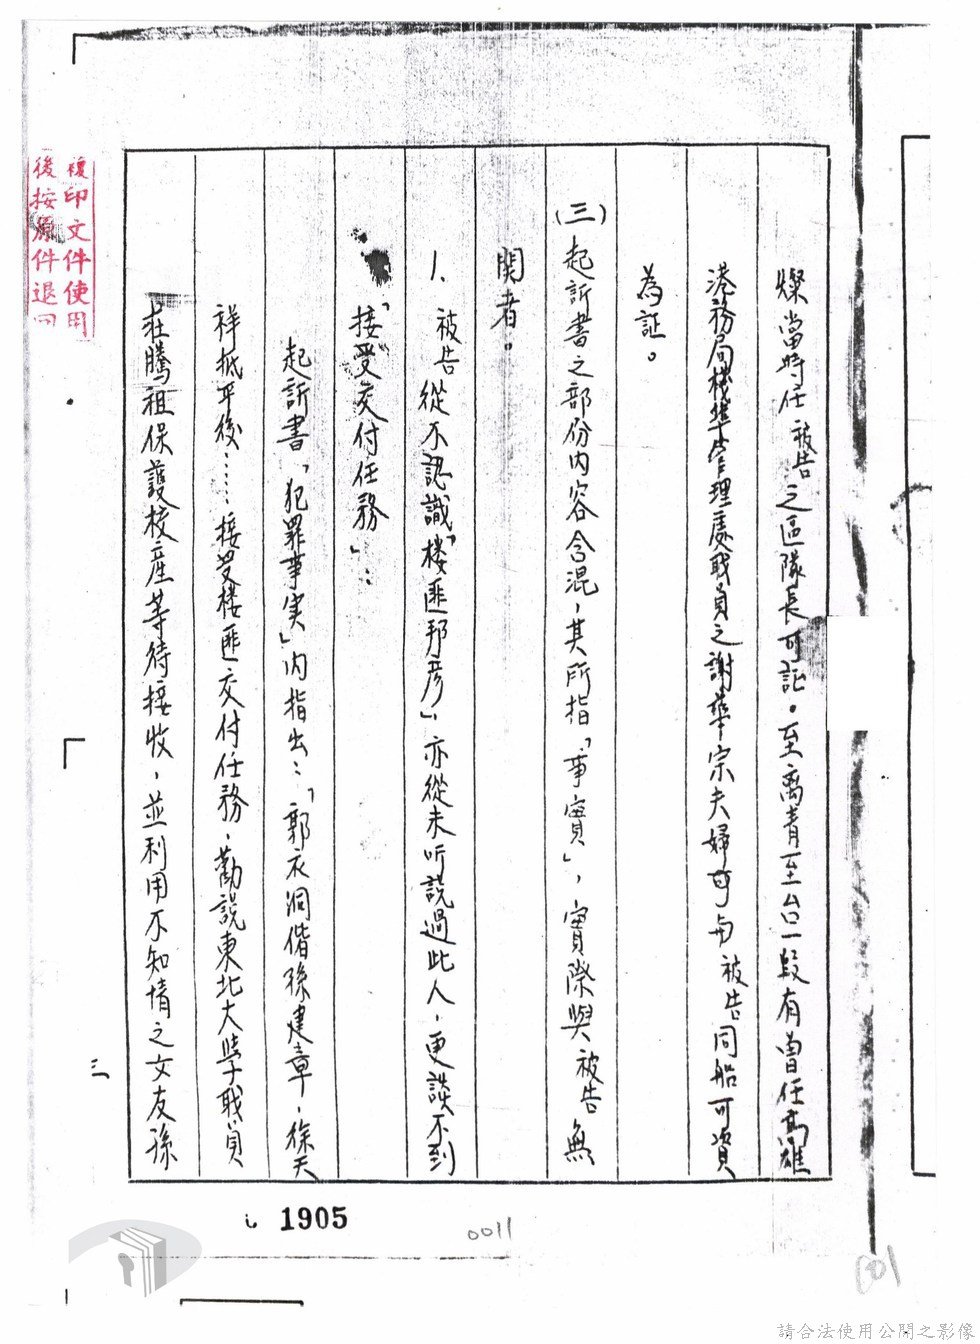 燦當時任被告之區隊長可証。至离青至台一段有曾任高雄
港務局機準管理處職員之謝華宗夫婦可与被告同船可資
為証。
(三)起訴書之部份内容含混，其所指「事實」，實際與被告無
関者。
1. 被告從不認識「楼匪邦彥」，亦從未听說過此人，更談不到
「接受交付任務」：
起訴書「犯罪事実」内指出：「郭衣洞偕孫建章，徐天
祥抵平後……接受楼匪交付任務，勸說東北大學職員
莊騰祖保護校産等待接收，並利用不知情之文友孫
三
複印文件使用
後按原件退回
1905
0011
請合法使用公開之影像